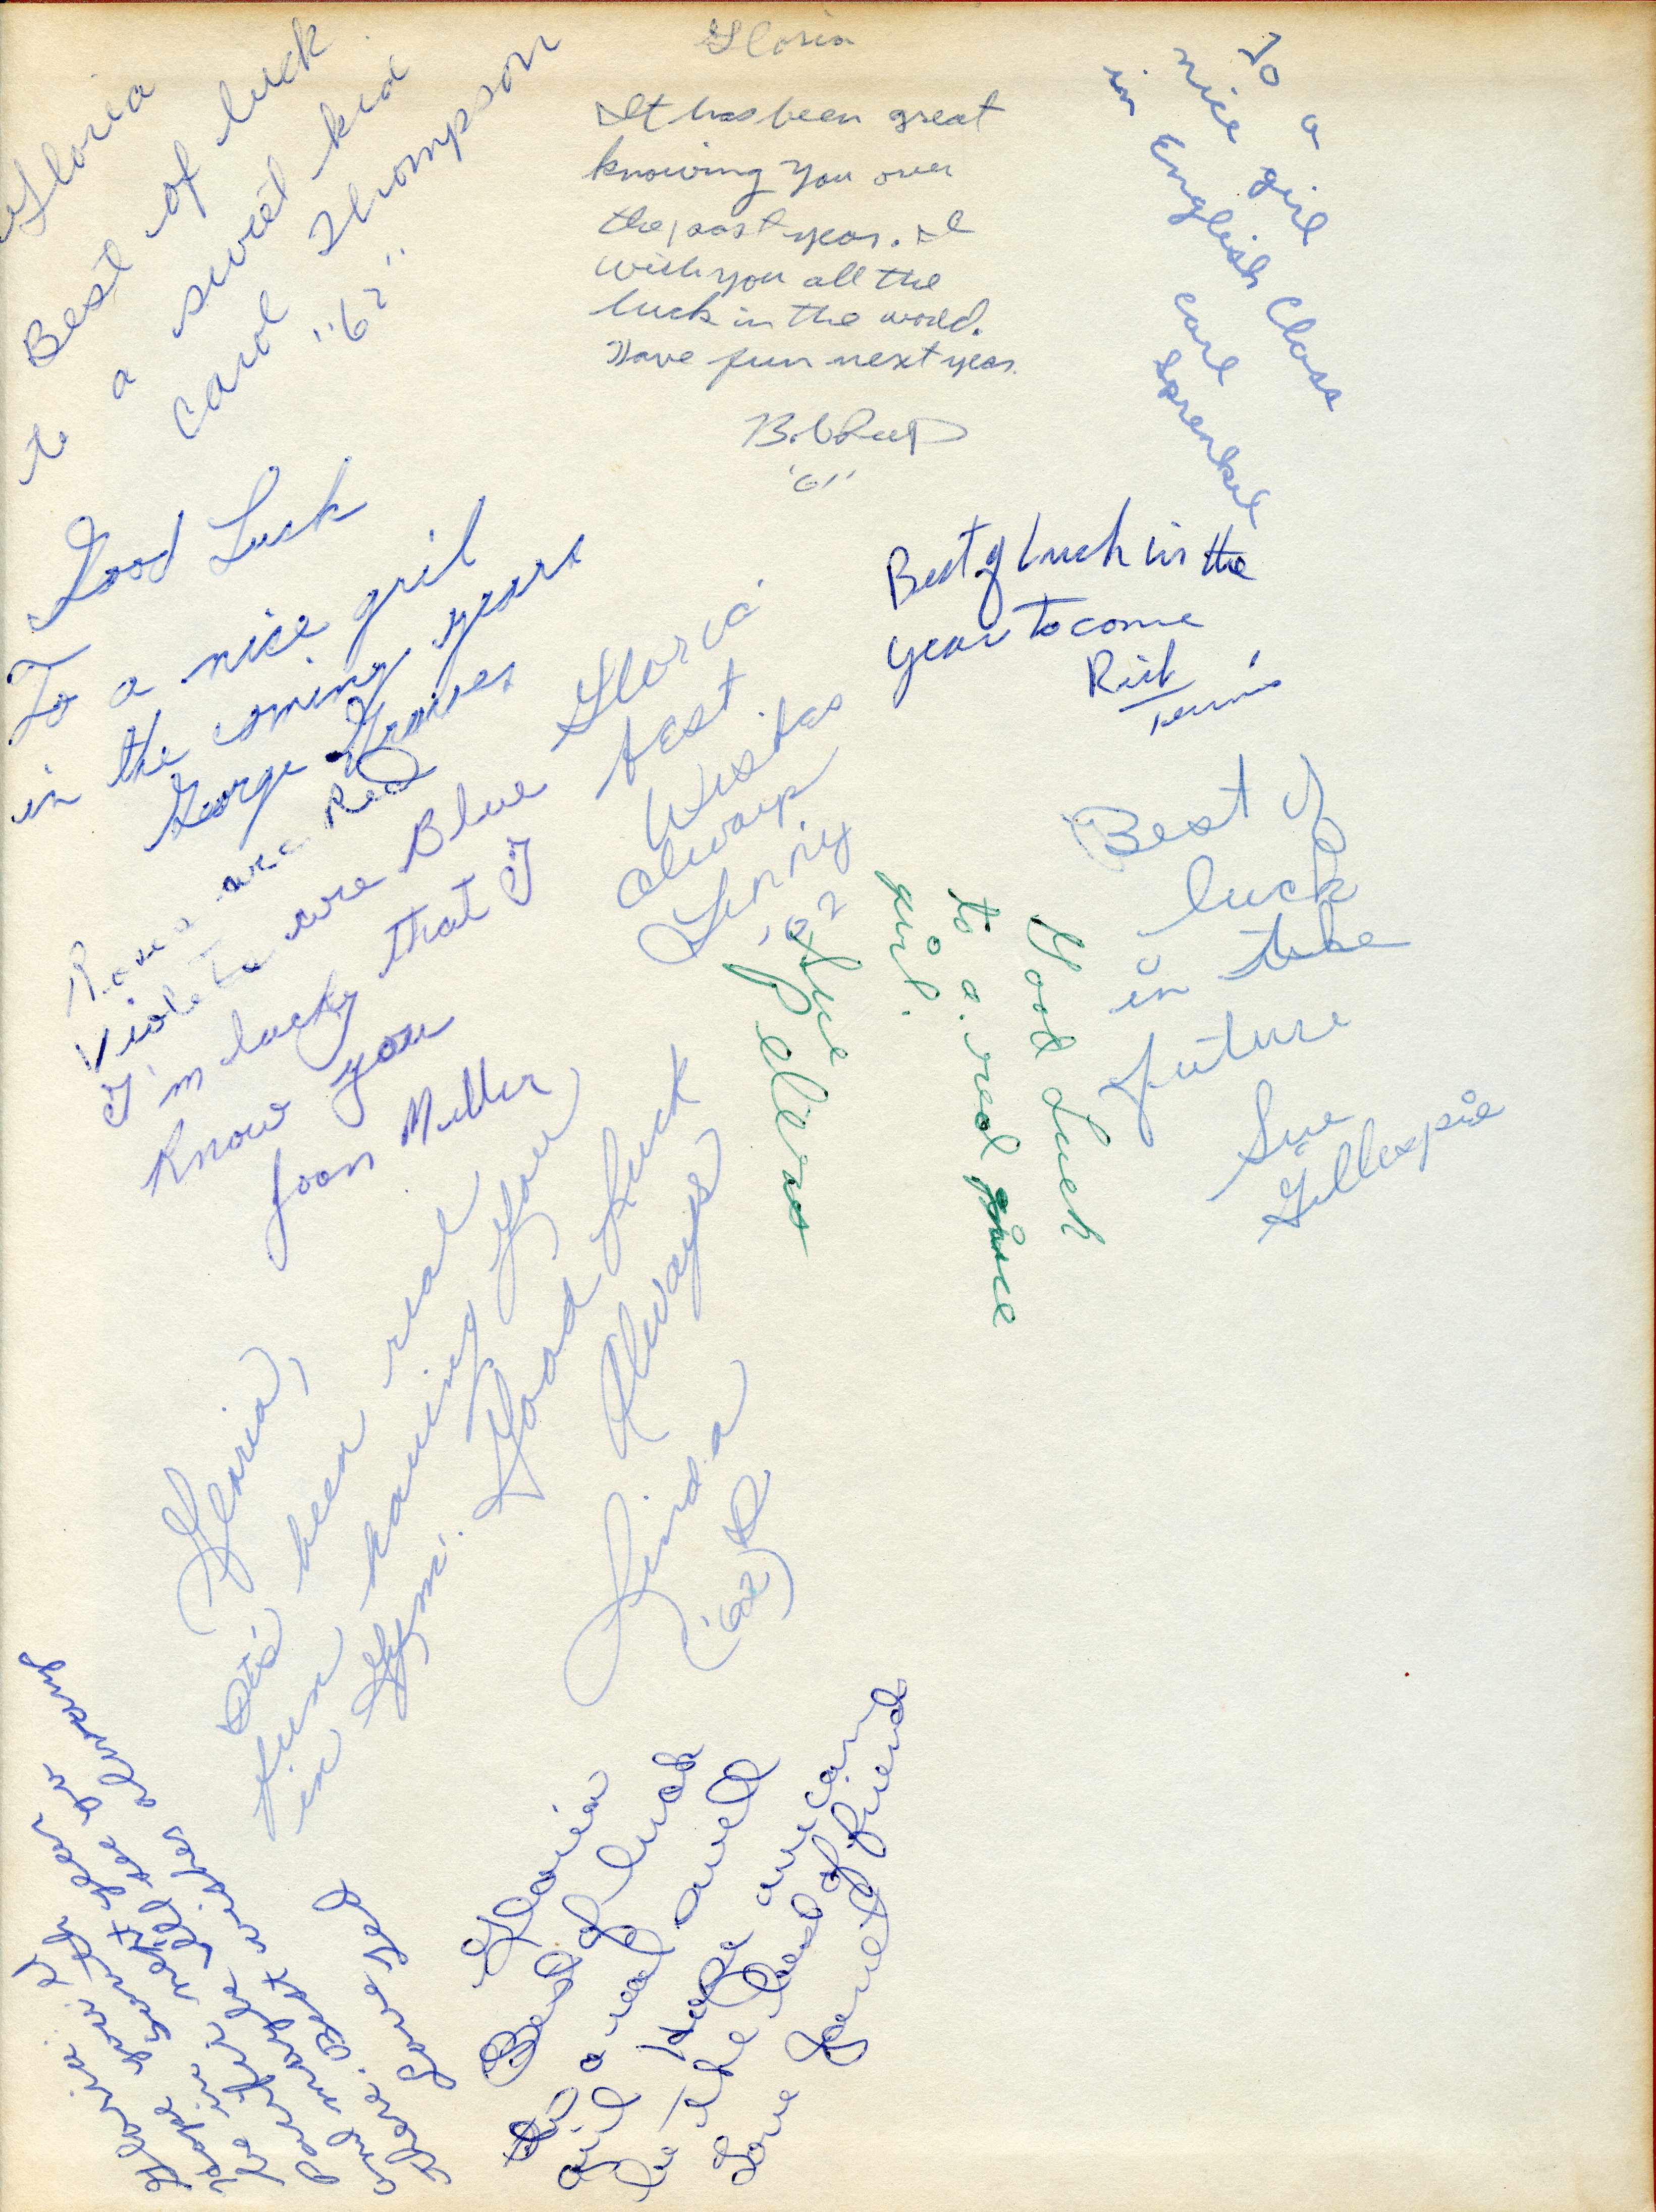 Gloria
Best of luck
to a sweet kid
Carol Thompson
"62"
Gloria
It has been great
knowing you over
the past year. I
wish you all the
luck in the world.
Have fun next year.
Bob
'61'
To a
nice girl
in English Class
Carl
Sprenkel
Good Luck
To a nice gril
in the coming years
George
Best of Luck in the
year to come
Rick
Best of
luck
in the
future
Sue
Gillespie
Roses are Red
Violets are Blue
I'm lucky that I
Know you
Joan Miller
Gloria
Best
Wishes
always
Ginny
'62
Good Luck
to a real nice
girl.
Sue
Gloria,
It's been real
fun having you
in Gym. Good Luck
Always
Linda
('62)
Gloria
Best of luck
to a real swell
girl. Hope we can
be the best of friends
Love
Gloria, I
hope you
be in
Park
and
there. Best wishes
Love